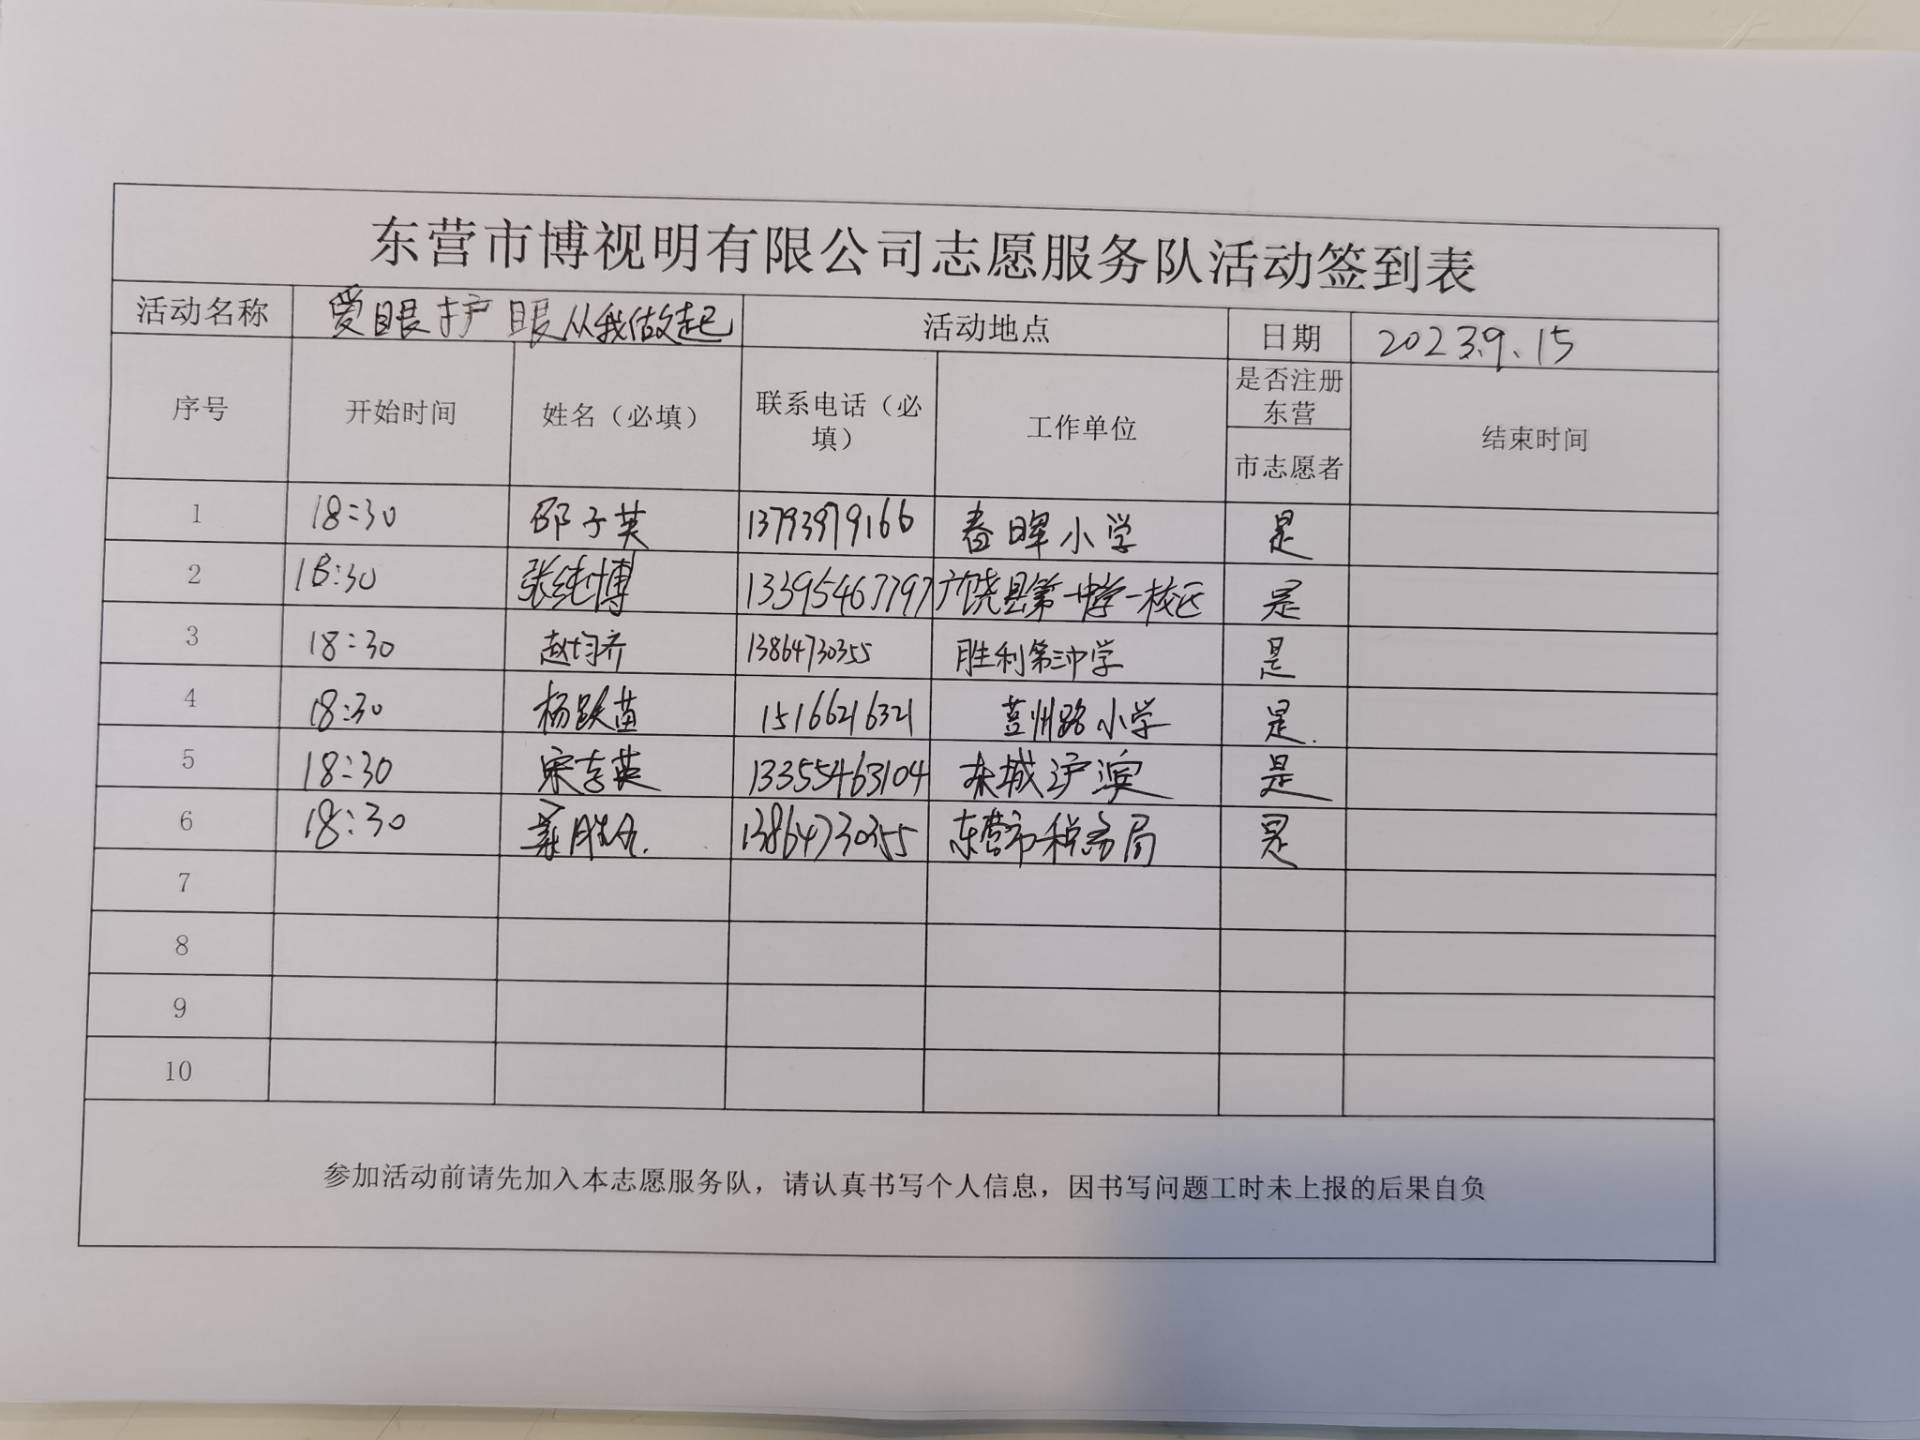 东营市博视明有限公司志愿服务队活动签到表
活动名称 爱眼护眼从我做起 活动地点 日期 2023.9.15
序号 开始时间 姓名（必填） 联系电话（必填） 工作单位 是否注册东营市志愿者 结束时间
1 18:30 邵子英 13793979166 春晖小学 是
2 18:30 张纯博 13395467797 广饶县第一中学一校区 是
3 18:30 赵均齐 13864730355 胜利第三中学 是
4 18:30 杨跃苗 15166216321 莒州路小学 是.
5 18:30 宋吉英 13355463104 东城沪滨 是
6 18:30 13864730355 东营市税务局 是
7
8
9
10
参加活动前请先加入本志愿服务队，请认真书写个人信息，因书写问题工时未上报的后果自负